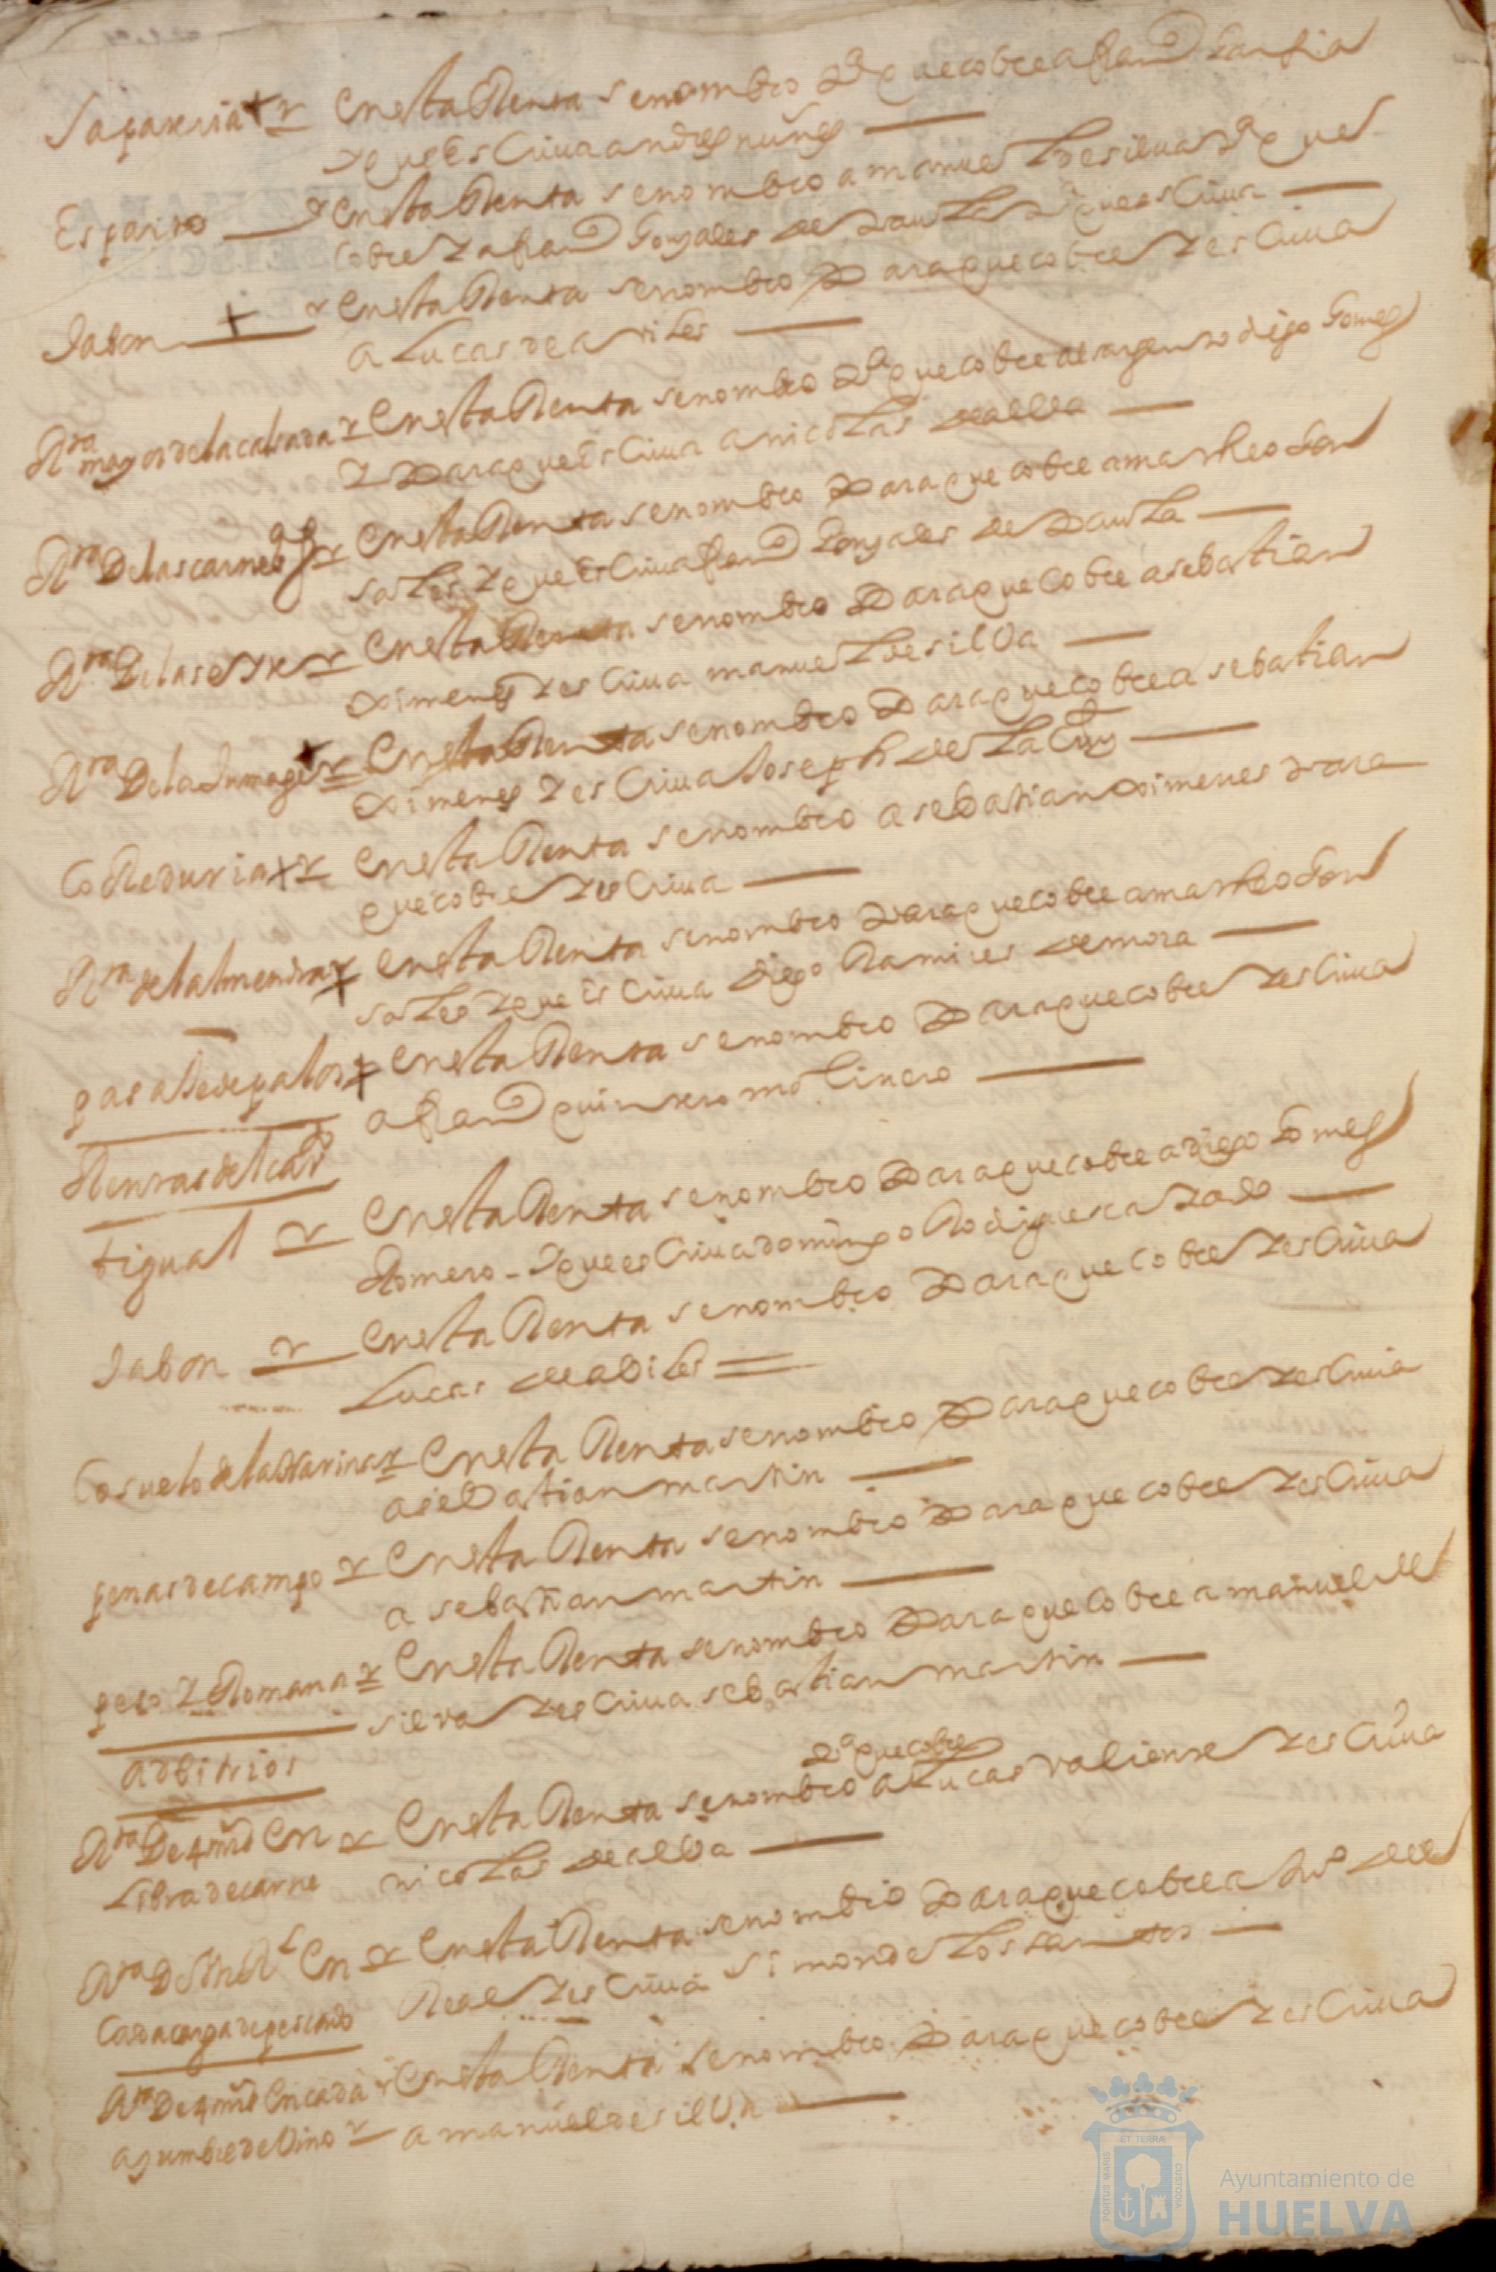 Sapateria + Y En esta Renta se nombro pa que cobre a franco garsia
Y que escriva andres nuñes
Esparto Y En esta Renta se nombro a manuel de silva pa que
cobre Y a franco Gonzales de Paula pa que escriva
Jabon + Y En esta Renta se nombro Para que cobre Y escriva
a Lucas de aviles
Rta mayor de la calsada Y En esta Renta se nombro pa que cobre al sargento diego Gomes
Y Para que escriva a nicolas de alba
Rta De las carnes Y En esta Renta se nombro Para que cobre a matheo Gon
sales Y que escriva franco Gonzales de Paula
Rta De la serre Y En esta Renta se nombro Para que cobre a sebastian
Ximenes Y escriva manuel de silva
Rta De la Jumage Y En esta Renta se nombro Para que cobre a sebatian
Ximenes Y escriva Joseph de La Cruz
CoReduria + Y En esta Renta se nombro a sebatian Ximenes Para
que cobre Y escriva
Rta de la lmendra Y En esta Renta se nombro Para que cobre a matheo Gon
sales Y que escriva diego Ramires de mora
En esta Renta se nombro Para que cobre Y escriva
a franco quintero molinero
Rentas del cavdo
tigual Y En esta Renta se nombro Para que cobre a diego Gomes
Romero - Y que escriva domingo Rodrigues
Jabon Y En esta Renta se nombro Para que cobre Y escriva
Lucas de abiles
Cosuelo de la Harina Y En esta Renta se nombro Para que cobre Y escriva
a sebastian martin
penas de campo Y En esta Renta se nombro Para que cobre Y escriva
a sebastian martin
peso Y Romana Y En esta Renta se nombro Para que cobre a manuel de
silva Y escriva sebastian martin
adbitrios
pa que cobre
Rta De 4 mrs En Y En esta Renta se nombro a Lucas valiente Y escriva
Libra de carne nicolas de alba
Rta De Rl En Y En esta Renta se nombro Para que cobre a Juo del
Cada carga de pescado Real Y escriva simon de Los santos
Rta De 4 mrs En cada Y En esta Renta se nombro Para que cobre Y escriva
asumbre de Vino Y a manuel de silva
ET TERRÆ
PORTUS MARIS
CUSTODIA
Ayuntamiento de
HUELVA